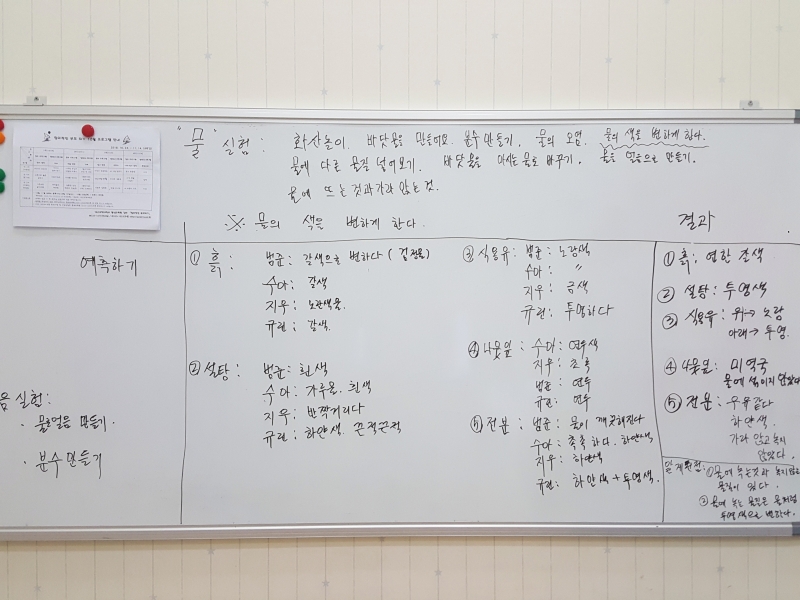 "물" 실험: 화산놀이. 바닷물을 만들어요. 분수 만들기. 물의 오염. 물의 색을 변하게 한다.
물에 다른 물질 넣어보기. 바닷물을 마시는 물로 바꾸기. 물을 얼음으로 만들기.
물에 뜨는것과 가라앉는것.
※ 물의 색을 변하게 한다.
결과
예측하기
음 실험:
· 물로얼음 만들기.
· 분수 만들기
① 흙: 범준: 갈색으로 변하다 (검정물)
수아: 갈색
지우: 노란색물.
규린: 갈색.
② 설탕: 범준: 흰색
수아: 가루물. 흰색
지우: 반짝거리다
규린: 하얀색. 끈적끈적
③ 식용유: 범준: 노랑색
수아: 〃
지우: 금색
규린: 투명하다
④ 나뭇잎: 수아: 연두색
지우: 초록
범준: 연두
규린: 연두
⑤ 전분: 범준: 물이 깨끗해진다
수아: 촉촉하다. 하얀색
지우: 하얀색
규린: 하얀색 + 투명색.
① 흙: 연한 갈색
② 설탕: 투명색
③ 식용유: 위→ 노랑
아래→ 투명.
④ 나뭇잎: 미역국
물에 섞이지 않았다
⑤ 전분: 우유같다
하얀색.
가라앉고 녹이
않았다.
① 물에 녹는것과 녹지않는
물질이 있다.
② 물에 녹는 물질은 물처럼
투명색으로 변한다.